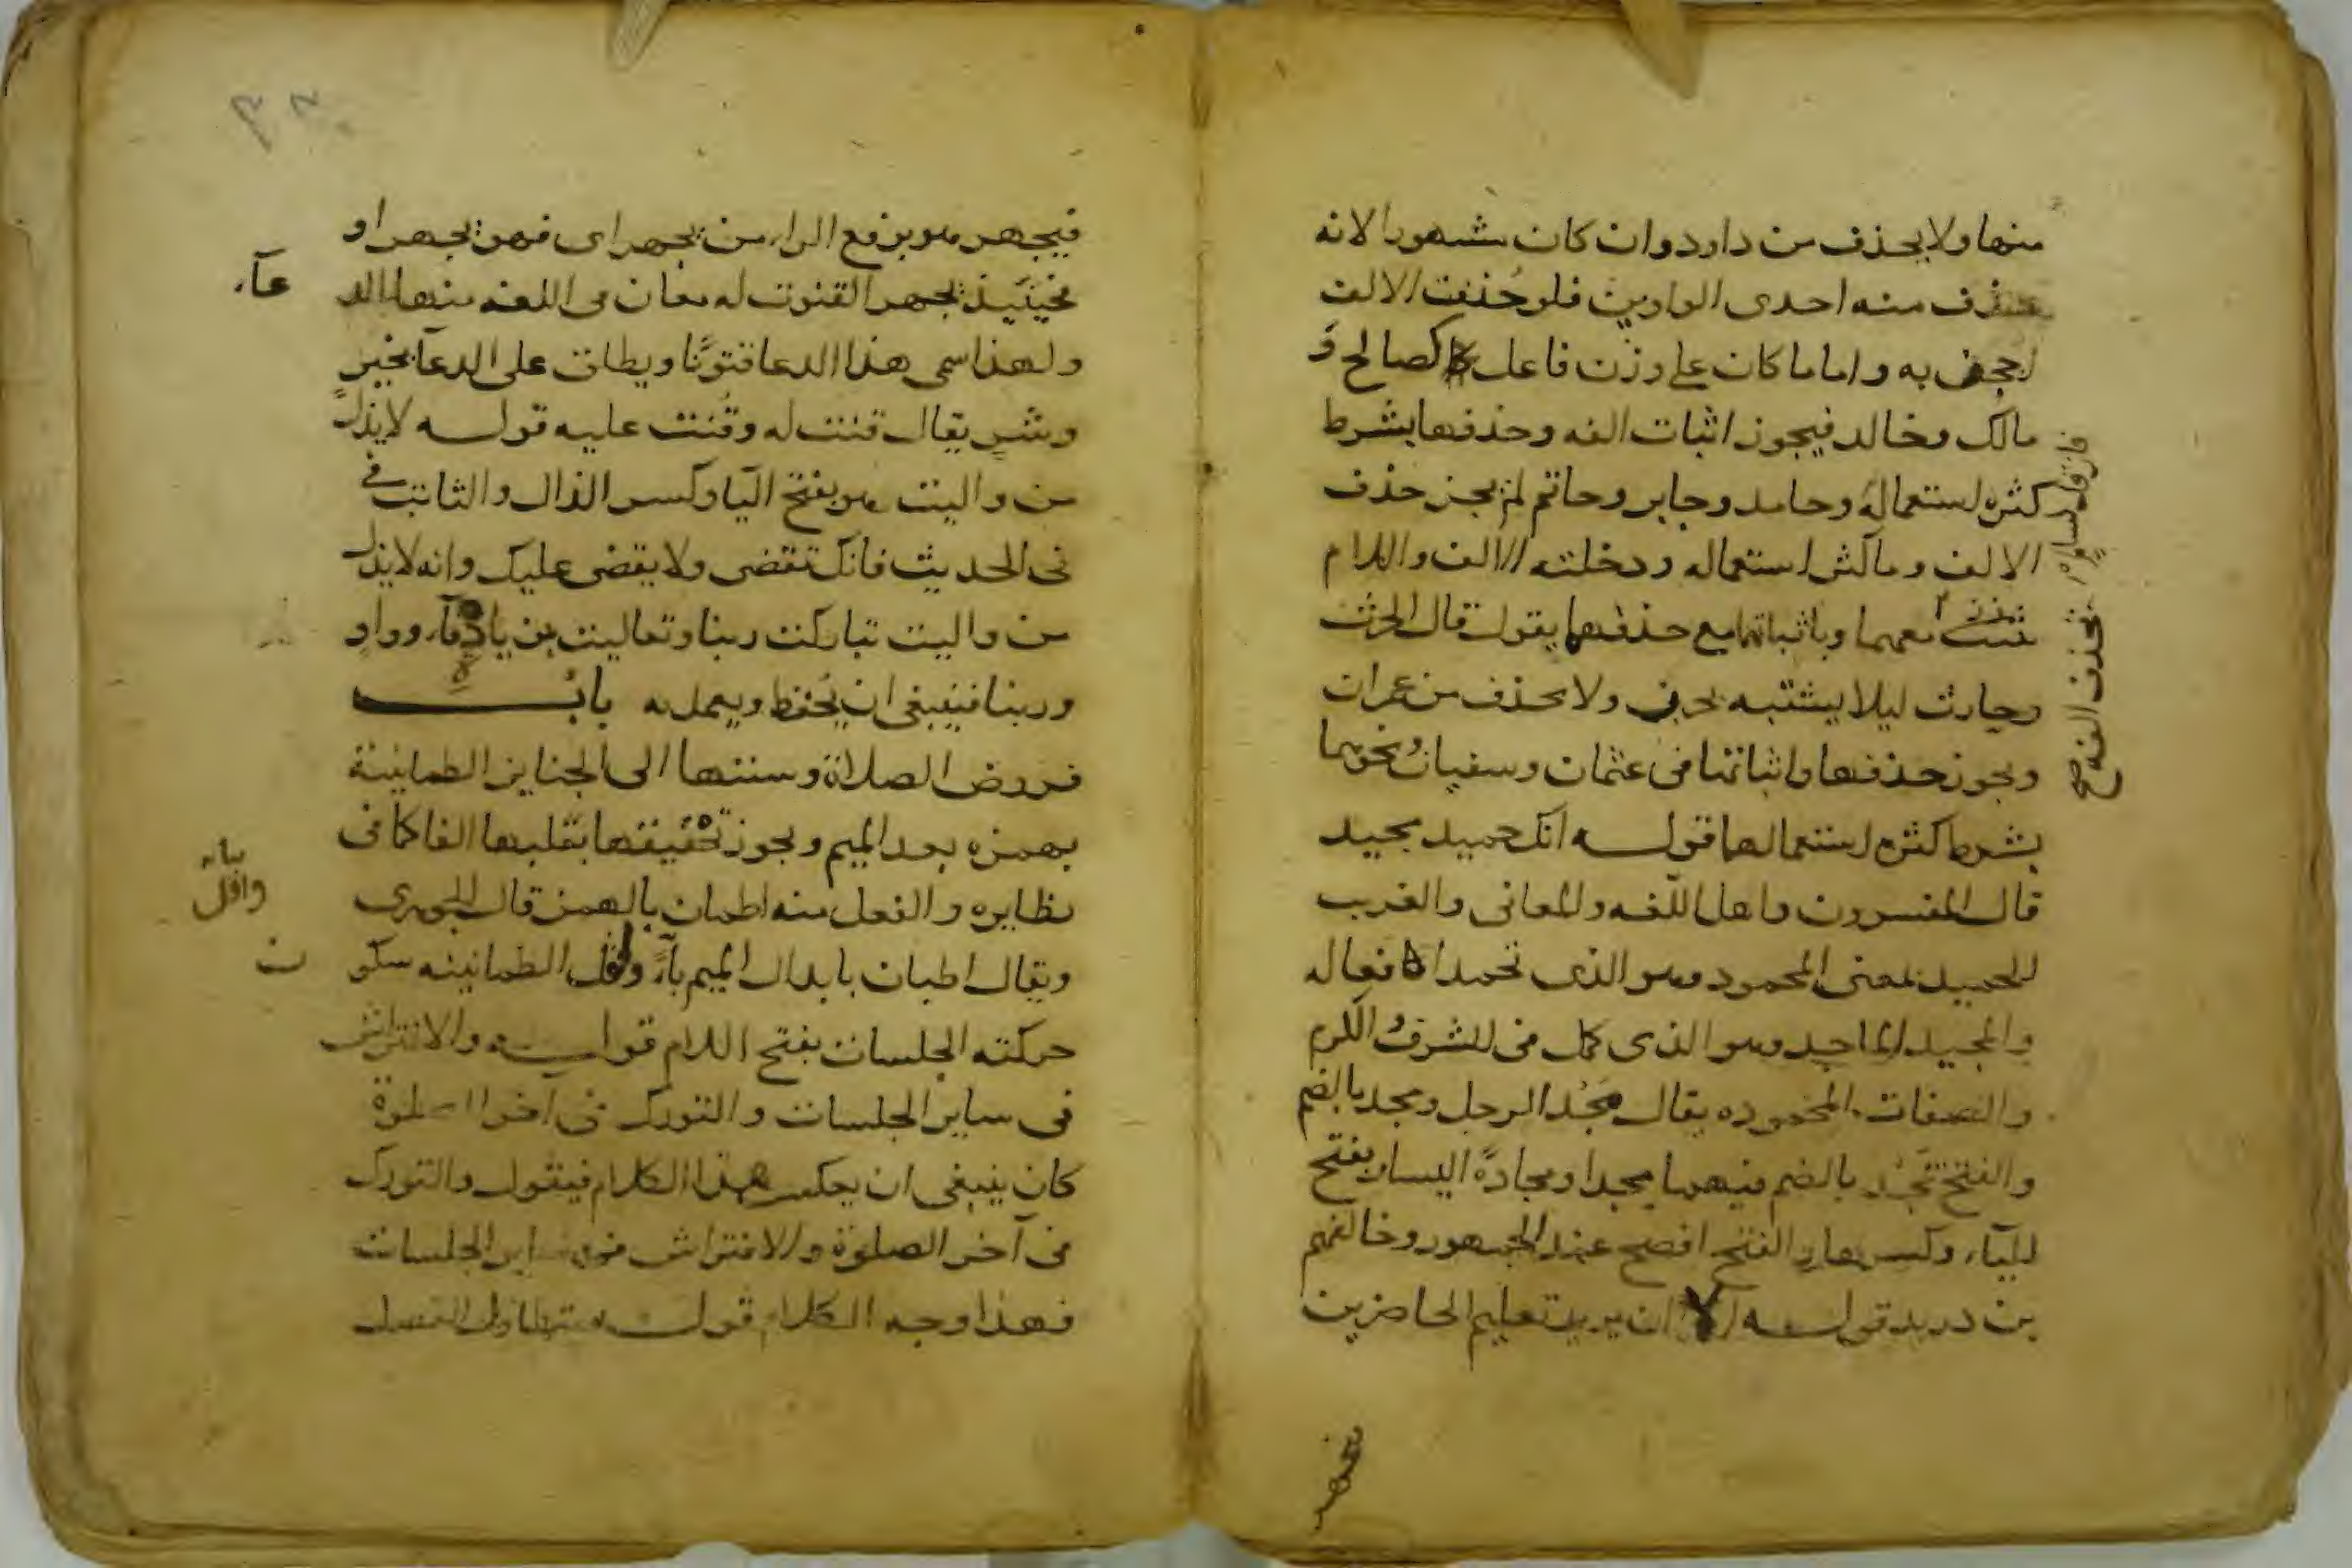 منها ولا يحذف من داود وان كان مشهورا لانه
حذف منه احدى الواوين فلو حُذفت الالف
لاجحف به واما ما كان على وزن فاعل كصالح و
مالك وخالد فيجوز اثبات الفه وحذفها بشرط
كثره استعماله وحامد وجابر وحاتم لم يجز حذف
الالف وما كثر استعماله ودخلته الالف واللام
معهما وباثباتها مع حذفهما يقول قال الحرث
وحارث ليلا يشتبه بحرب ولا يحذف من عمران
ويجوز حذفها واثباتها في عثمان وسفيان ونحوهما
بشرط كثره استعمالها قوله انك حميد مجيد
قال المفسرون واهل اللغه والمعاني والغريب
الحميد بمعنى المحمود وهو الذي تحمد افعاله
والمجيد الماجد وهو الذي كمل في الشرف والكرم
والصفات المحموده يقال مجُد الرجل ومجد بالضم
والفتح يمجُد بالضم فيهما مجدا ومجادةً اليسار بفتح
اليآء وكسرها والفتح افصح عند الجمهور وخالفهم
بن دريد قوله الا ان يريد تعليم الحاضرين
يحذف الفه صح
فيجهر
فيجهر هو برفع الراء من يجهر اى فهو يجهر او
فحينَيذ يجهر القنوت له معان فى اللغه منها الد
عآء
ولهذا سمى هذا الدعا قنوتًا ويطلق على الدعا بخيرٍ
وشرٍ يقال قنت له وقنت عليه قوله لا يذلُ
من واليت هو بفتح اليا وكسر الذال والثابت في
فى الحديث فانك تقضى ولا يقضى عليك وانه لا يذل
من واليت تباركت ربنا وتعاليت بزيادة فآء وواو
وربنا فينبغى ان يُحفظ ويعمل به بابُ
فروض الصلاة وسننها الى الجنايز الطمانينة
بهمزه بعد الميم ويجوز تخفيفها بقلبها الفا كما فى
نظايره والفعل منه اطمان بالهمز قال الجوهرى
ويقال اطبان بابدال الميم بآءً واقل الطمانينه سكو
ن
بيانه
واقل
حركته الجلسات بفتح اللام قوله والافتراش
فى ساير الجلسات والتورك فى آخر الصلوة
كان ينبغى ان يعكس هذا الكلام فيقول والتورك
فى آخر الصلوة والافتراش فى ساير الجلسات
فهذا وجه الكلام قوله